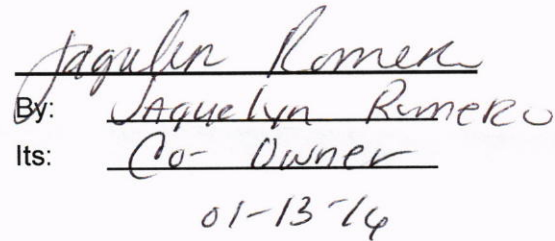 Jaquelyn Romero
By: Jaquelyn Romero
Its: Co-Owner
01-13-16